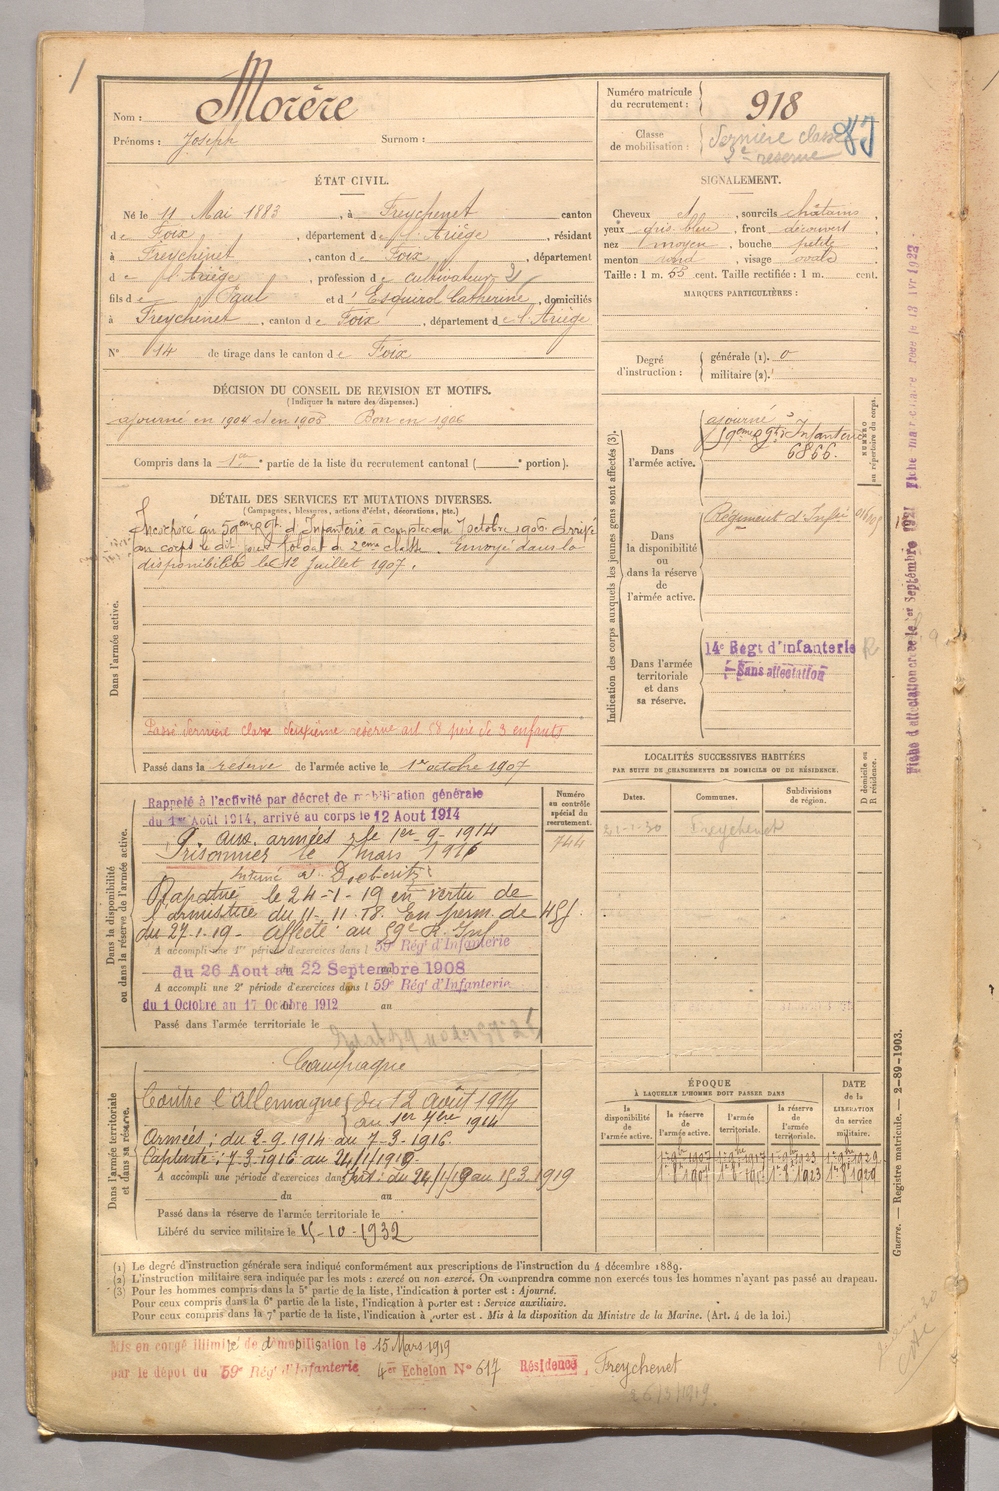 1
Nom : Morère
Prénoms : Joseph Surnom :
Numéro matricule du recrutement : 918
Classe de mobilisation : Dernière classe
2e réserve
ÉTAT CIVIL.
Né le 11 Mai 1883, à Freychenet canton
de Foix, département de l'Ariège, résidant
à Freychenet, canton de Foix, département
de l'Ariège, profession de cultivateur
fils de Paul et d'Esquirol Catherine, domiciliés
à Freychenet, canton de Foix, département de l'Ariège
N° 14 de tirage dans le canton de Foix
SIGNALEMENT.
Cheveux et, sourcils châtains,
yeux gris bleu, front découvert
nez moyen, bouche petite
menton rond, visage ovale
Taille : 1 m. 55 cent. Taille rectifiée : 1 m. cent.
MARQUES PARTICULIÈRES :
Degré d'instruction : générale (1). 0
militaire (2).
DÉCISION DU CONSEIL DE REVISION ET MOTIFS.
(Indiquer la nature des dispenses.)
ajourné en 1904 et en 1905 Bon en 1906
Compris dans la 1re partie de la liste du recrutement cantonal ( portion).
DÉTAIL DES SERVICES ET MUTATIONS DIVERSES.
(Campagnes, blessures, actions d'éclat, décorations, etc.)
Dans l'armée active.
Incorporé au 59eme Rgt d'Infanterie à compter du 7 octobre 1906. Arrivé
au corps le dit jour soldat de 2eme classe. Envoyé dans la
disponibilité le 12 Juillet 1907.
Passé dernière classe deuxième réserve art 58 père de 3 enfants
Passé dans la réserve de l'armée active le 1er octobre 1907
Indication des corps auxquels les jeunes gens sont affectés (3).
NUMÉRO au répertoire du corps.
Dans l'armée active.
ajourné
59eme Rgt d'Infanterie
6866.
Dans la disponibilité ou dans la réserve de l'armée active.
Régiment d'Infie
Dans l'armée territoriale et dans sa réserve.
14e Régt d'infanterie
Sans affectation
LOCALITÉS SUCCESSIVES HABITÉES
PAR SUITE DE CHANGEMENTS DE DOMICILE OU DE RÉSIDENCE.
Dates. Communes. Subdivisions de région. D domicile ou R résidence.
21-1-30 Freychenet
Dans la disponibilité ou dans la réserve de l'armée active.
Numéro au contrôle spécial du recrutement.
744
Rappelé à l'activité par décret de mobilisation générale
du 1er Août 1914, arrivé au corps le 12 Aout 1914
aux armées le 1er-9-1914
Prisonnier le 7 mars 1916
Interné à Doeberitz
Rapatrié le 24-1-19 en vertu de
l'armistice du 11-11-18. En perm. de 45 j.
du 27-1-19 - affecté au 59e R. Inf
A accompli une 1re période d'exercices dans l 59e Rég' d'Infanterie
du 26 Aout au 22 Septembre 1908
A accompli une 2e période d'exercices dans l 59e Rég' d'Infanterie
du 1 Octobre au 17 Octobre 1912 au
Passé dans l'armée territoriale le
Dans l'armée territoriale et dans sa réserve.
Campagne
Contre l'allemagne du 12 août 1914
au 1er 7bre 1914
Armées : du 2-9-1914 au 7-3-1916.
Captivité : 7-3-1916 au 24/1/1919-
A accompli une période d'exercices dans Int. : du 24/1/19 au 15.3.1919
du au
Passé dans la réserve de l'armée territoriale le
Libéré du service militaire le 15-10-1932
ÉPOQUE
À LAQUELLE L'HOMME DOIT PASSER DANS
la disponibilité de l'armée active. la réserve de l'armée active. l'armée territoriale. la réserve de l'armée territoriale. DATE de la LIBÉRATION du service militaire.
(1) Le degré d'instruction générale sera indiqué conformément aux prescriptions de l'instruction du 4 décembre 1889.
(2) L'instruction militaire sera indiquée par les mots : exercé ou non exercé. On comprendra comme non exercés tous les hommes n'ayant pas passé au drapeau.
(3) Pour les hommes compris dans la 5e partie de la liste, l'indication à porter est : Ajourné.
Pour ceux compris dans la 6e partie de la liste, l'indication à porter est : Service auxiliaire.
Pour ceux compris dans la 7e partie de la liste, l'indication à porter est : Mis à la disposition du Ministre de la Marine. (Art. 4 de la loi.)
Mis en congé illimité de démobilisation le 15 Mars 1919
par le dépot du 59e Rég' d'Infanterie 4er Echelon N° 617 Résidence, Freychenet
26/3/1919.
Guerre. — Registre matricule. — 2-89-1903.
Fiche d'affectation créée le 1er Septembre 1921